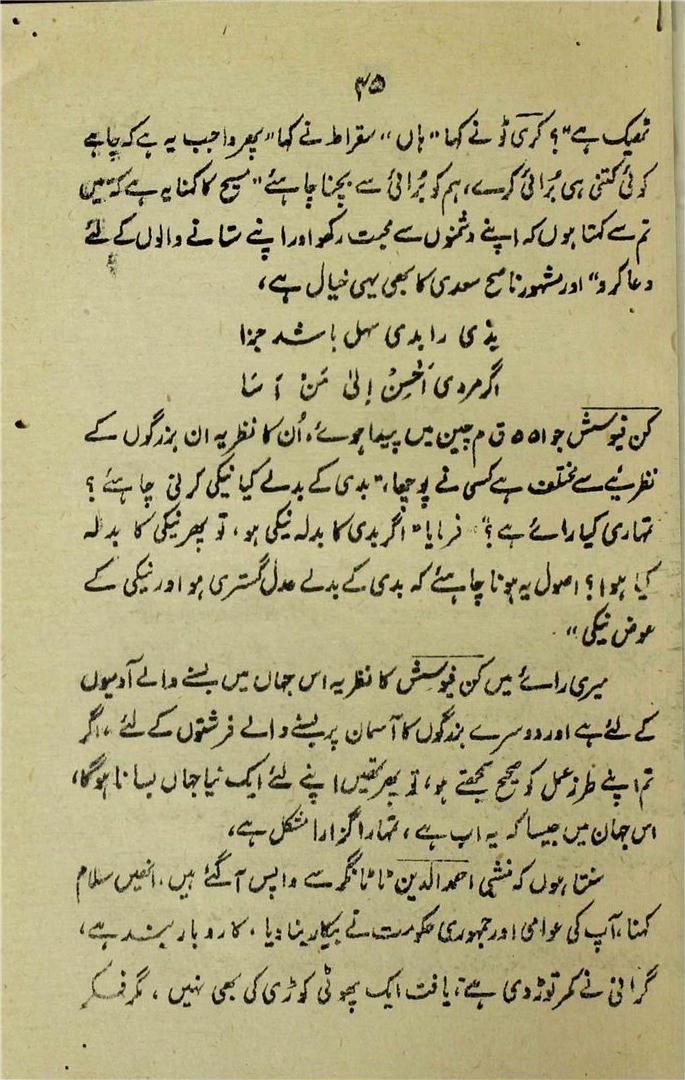 ۴۵
ٹھیک ہے"؟ کری ٹو نے کہا "ہاں" سقراط نے کہا "پھر واجب یہ ہے کہ چاہے
کوئی کتنی ہی بُرائی کرے، ہم کو بُرائی سے بچنا چاہئے" مسیح کا کہنا یہ ہے کہ "میں
تم سے کہتا ہوں کہ اپنے دشمنوں سے محبت رکھو اور اپنے ستانے والوں کے لئے
دعا کرو" اور مشہور ناصح سعدی کا بھی یہی خیال ہے،
بدی را بدی سہل باشد جزا
اگر مردی اَحْسِنْ إلیٰ مَنْ اَسَا
کن فیوسش جو ۵۵۱ ق م چین میں پیدا ہوئے، اُن کا نظریہ ان بزرگوں کے
نظریئے سے مختلف ہے کسی نے پوچھا، "بدی کے بدلے کیا نیکی کرنی چاہئے؟
تمہاری کیا رائے ہے؟" فرمایا "اگر بدی کا بدلہ نیکی ہو، تو پھر نیکی کا بدلہ
کیا ہوا؟ اصول یہ ہونا چاہئے کہ بدی کے بدلے عدل گستری ہو اور نیکی کے
عوض نیکی"
میری رائے میں کن فیوسش کا نظریہ اس جہاں میں بسنے والے آدمیوں
کے لئے ہے اور دوسرے بزرگوں کا آسمان پر بسنے والے فرشتوں کے لئے، اگر
تم اپنے طرز عمل کو صحیح سمجھتے ہو، تو پھر تمھیں اپنے لئے ایک نیا جہاں بسانا ہوگا،
اس جہان میں جیسا کہ یہ اب ہے، تمہارا گزارا مشکل ہے،
سنتا ہوں کہ منشی احمد الدین ٹاٹانگر سے واپس آگئے ہیں، انھیں سلام
کہنا، آپ کی عوامی اور جمہوری حکومت نے بیکار بنا دیا، کاروبار بند ہے،
گرانی نے کمر توڑ دی ہے، یافت ایک پھوٹی کوڑی کی بھی نہیں، مگر فکر